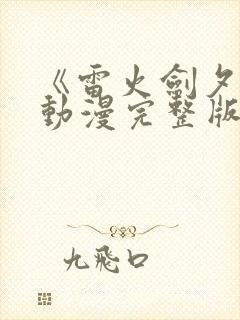 《雷火劍夕
動漫完整版
九飛口